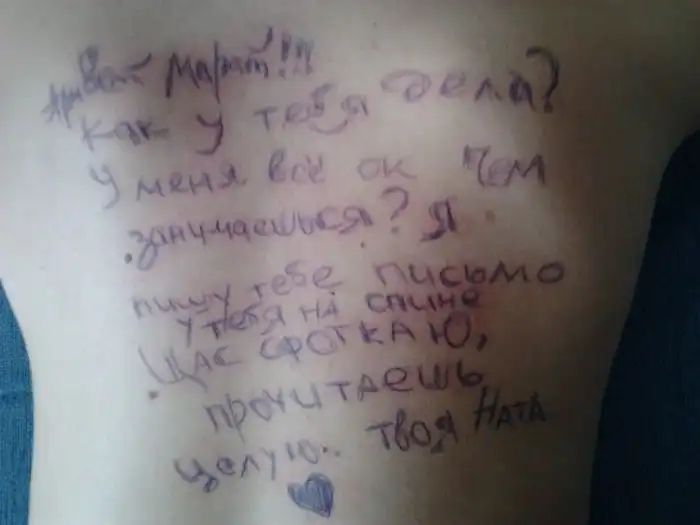 Привет Марат!!!
Как у тебя дела?
У меня всё ок Чем
занимаешься? Я
пишу тебе письмо
у тебя на спине
Щас сфоткаю,
прочитаешь
целую.. твоя Ната